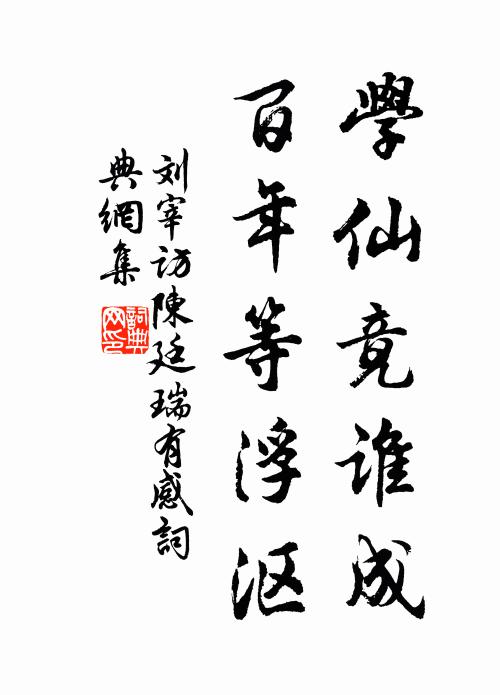 學仙竟谁成
百年等浮沤
刘宰访陳廷瑞有感詞
典網集
詞典
网印